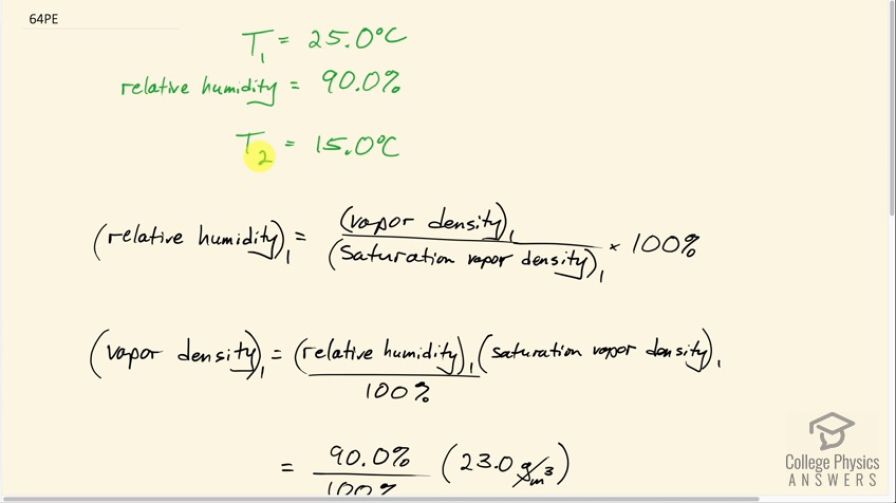 64PE
T₁ = 25.0°C
relative humidity = 90.0%
T₂ = 15.0°C
(relative humidity)₁ = (vapor density)₁ / (saturation vapor density)₁ × 100%
(vapor density)₁ = (relative humidity)₁ (saturation vapor density)₁ / 100%
= 90.0% / 100% (23.0 g/m³)
College Physics
ANSWERS